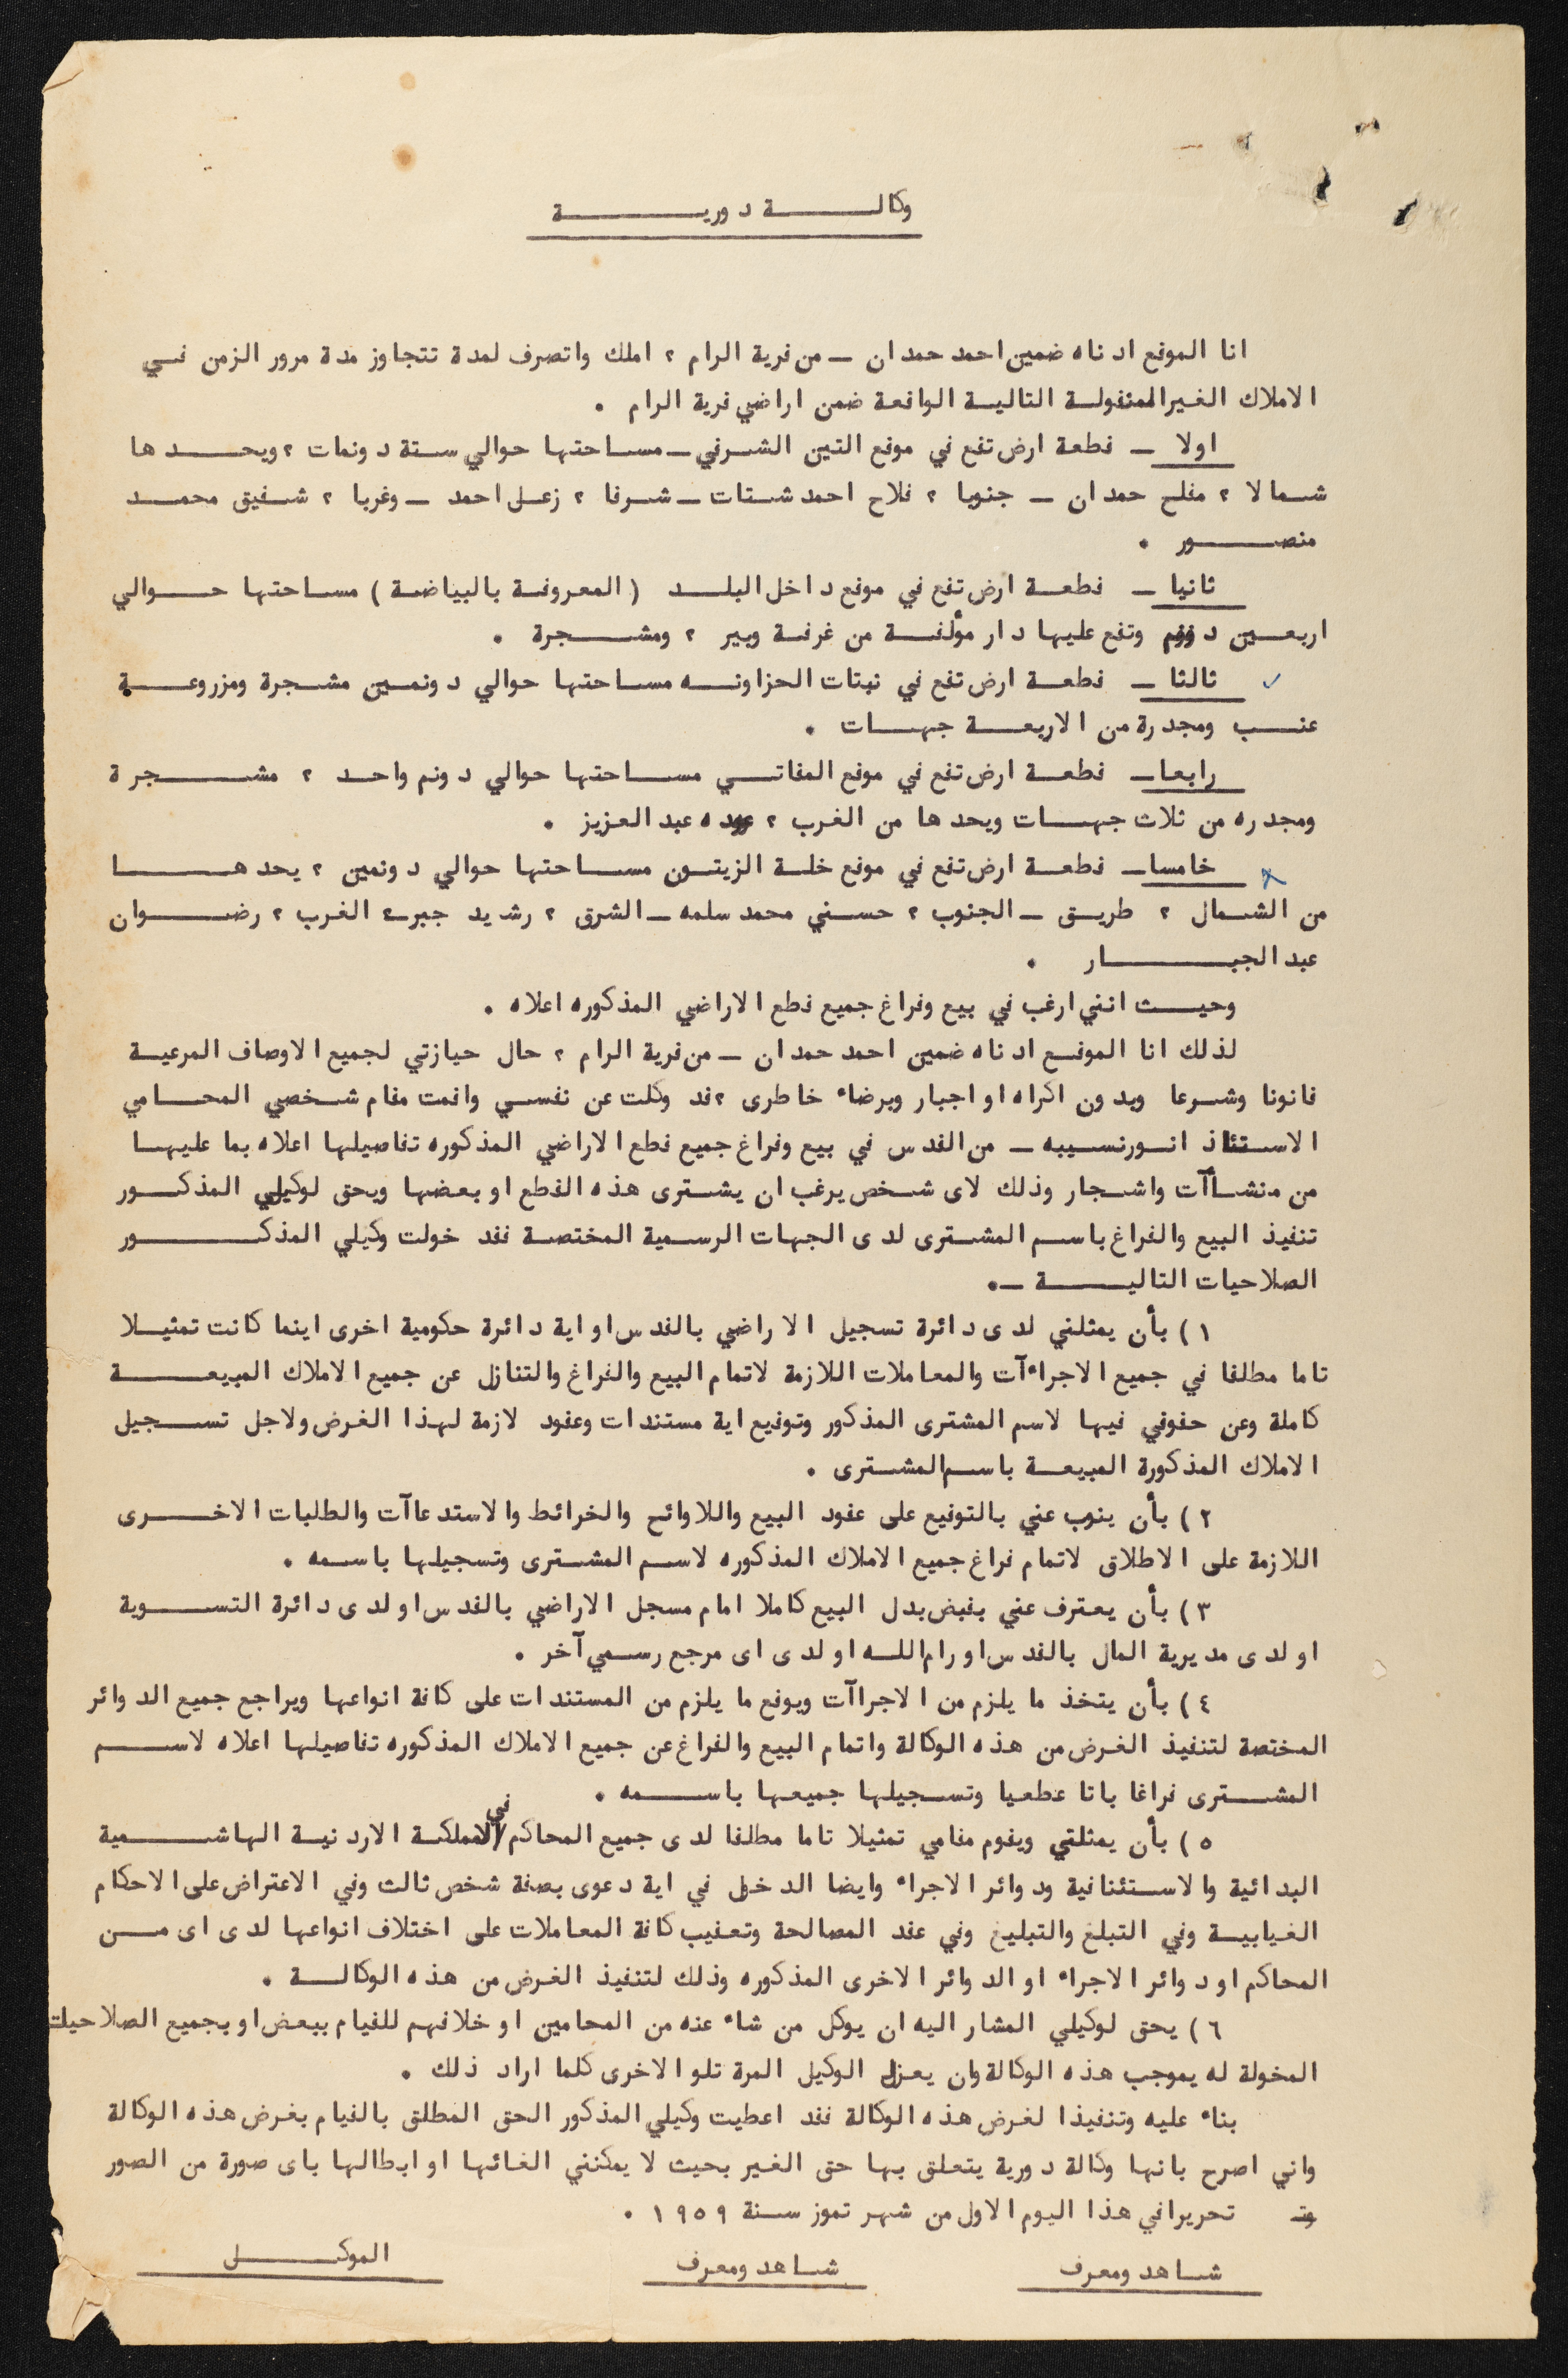 وكالة دورية
انا الموقع ادناه ضمين احمد حمدان ـ من قرية الرام ، املك واتصرف لمدة تتجاوز مدة مرور الزمن في
الاملاك الغير المنقولة التالية الواقعة ضمن اراضي قرية الرام .
اولا ـ قطعة ارض تقع في موقع التين الشرقي ـ مساحتها حوالي ستة دونمات ، ويحدها
شمالا ، مفلح حمدان ـ جنوبا ، فلاح احمد شتات ـ شرقا ، زعل احمد ـ وغربا ، شفيق محمد
منصور .
ثانيا ـ قطعة ارض تقع في موقع داخل البلد ( المعروفة بالبياضة ) مساحتها حوالي
اربعين دونم وتقع عليها دار مؤلفة من غرفة وبير ، ومشجرة .
ثالثا ـ قطعة ارض تقع في نبتات الحزاونه مساحتها حوالي دونمين مشجرة ومزروعة
عنب ومجدرة من الاربعة جهات .
رابعا ـ قطعة ارض تقع في موقع المقاتي مساحتها حوالي دونم واحد ، مشجرة
ومجدره من ثلاث جهات ويحدها من الغرب ، عوده عبد العزيز .
خامسا ـ قطعة ارض تقع في موقع خلة الزيتون مساحتها حوالي دونمين ، يحدها
من الشمال ، طريق ـ الجنوب ، حسني محمد سلمه ـ الشرق ، رشيد جبر ـ الغرب ، رضوان
عبد الجبار .
وحيث انني ارغب في بيع وفراغ جميع قطع الاراضي المذكوره اعلاه .
لذلك انا الموقع ادناه ضمين احمد حمدان ـ من قرية الرام ، حال حيازتي لجميع الاوصاف المرعية
قانونا وشرعا وبدون اكراه او اجبار وبرضاء خاطرى ، قد وكلت عن نفسي واقمت مقام شخصي المحامي
الاستاذ انور نسيبه ـ من القدس في بيع وفراغ جميع قطع الاراضي المذكوره تفاصيلها اعلاه بما عليها
من منشاآت واشجار وذلك لاى شخص يرغب ان يشترى هذه القطع او بعضها ويحق لوكيلي المذكور
تنفيذ البيع والفراغ باسم المشترى لدى الجهات الرسمية المختصة فقد خولت وكيلي المذكور
الصلاحيات التالية ـ.
١ ) بأن يمثلني لدى دائرة تسجيل الاراضي بالقدس او اية دائرة حكومية اخرى اينما كانت تمثيلا
تاما مطلقا في جميع الاجراءآت والمعاملات اللازمة لاتمام البيع والفراغ والتنازل عن جميع الاملاك المبيعة
كاملة وعن حقوقي فيها لاسم المشترى المذكور وتوقيع اية مستندات وعقود لازمة لهذا الغرض ولاجل تسجيل
الاملاك المذكورة المبيعة باسم المشترى .
٢ ) بأن ينوب عني بالتوقيع على عقود البيع واللاوائح والخرائط والاستدعاآت والطلبات الاخرى
اللازمة على الاطلاق لاتمام فراغ جميع الاملاك المذكوره لاسم المشترى وتسجيلها باسمه .
٣ ) بأن يعترف عني بقبض بدل البيع كاملا امام مسجل الاراضي بالقدس او لدى دائرة التسوية
او لدى مديرية المال بالقدس او رام الله او لدى اى مرجع رسمي آخر .
٤ ) بأن يتخذ ما يلزم من الاجراآت ويوقع ما يلزم من المستندات على كافة انواعها ويراجع جميع الدوائر
المختصة لتنفيذ الغرض من هذه الوكالة واتمام البيع والفراغ عن جميع الاملاك المذكوره تفاصيلها اعلاه لاسم
المشترى فراغا باتا عطعيا وتسجيلها جميعها باسمه .
٥ ) بأن يمثلني ويقوم مقامي تمثيلا تاما مطلقا لدى جميع المحاكم / في المملكة الاردنية الهاشمية
البدائية والاستئنافية ودوائر الاجراء وايضا الدخول في اية دعوى بصفة شخص ثالث وفي الاعتراض على الاحكام
الغيابية وفي التبلغ والتبليغ وفي عقد المصالحة وتعقيب كافة المعاملات على اختلاف انواعها لدى اى من
المحاكم او دوائر الاجراء او الدوائر الاخرى المذكوره وذلك لتنفيذ الغرض من هذه الوكالة .
٦ ) يحق لوكيلي المشار اليه ان يوكل من شاء عنه من المحامين او خلافهم للقيام ببعض او بجميع الصلاحيات
المخولة له بموجب هذه الوكالة وان يعزل الوكيل المرة تلو الاخرى كلما اراد ذلك .
بناء عليه وتنفيذا لغرض هذه الوكالة فقد اعطيت وكيلي المذكور الحق المطلق بالقيام بغرض هذه الوكالة
واني اصرح بانها وكالة دورية يتعلق بها حق الغير بحيث لا يمكنني الغائها او ابطالها باى صورة من الصور
تحريرا في هذا اليوم الاول من شهر تموز سنة ١٩٥٩ .
شاهد ومعرف شاهد ومعرف الموكل